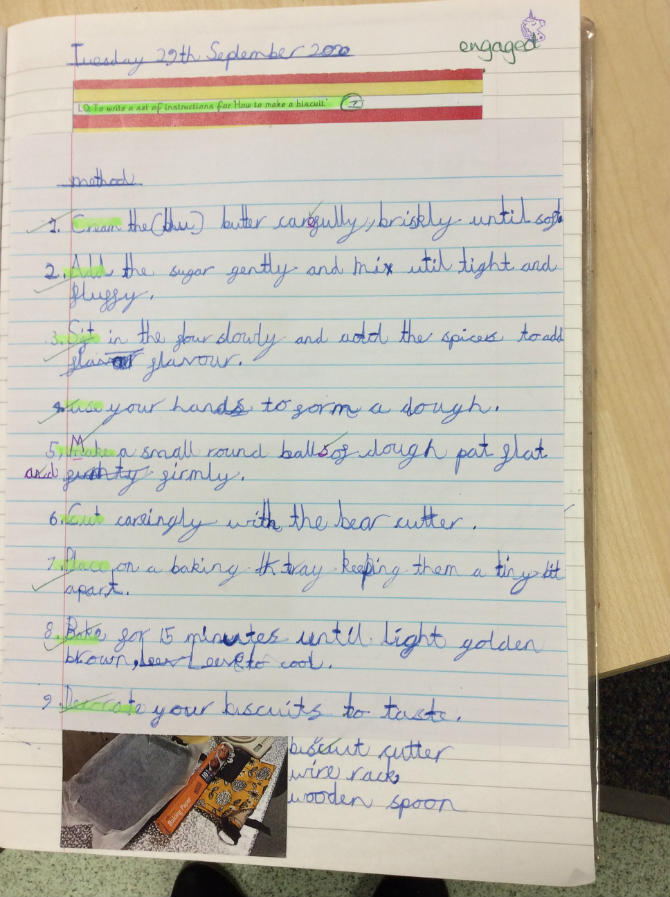 Tuesday 29th September 2020
engaged
LO: To write a set of instructions for 'How to make a biscuit' I
method
1. Cream the (thu) butter carefully, briskly until soft
2. Add the sugar gently and mix util light and
fluffy.
3. Sift in the flour slowly and add the spices to add
flavour.
4. use your hands to form a dough.
5. Make a small round balls of dough pat flat
and firmly.
6. Cut caringly with the bear cutter.
7. Place on a baking tray keeping them a tiny bit
apart.
8. Bake for 15 minutes until light golden
brown, Leve to cool.
9. Decorate your biscuits to taste.
biscuit cutter
wire rack
wooden spoon
Baking Paper